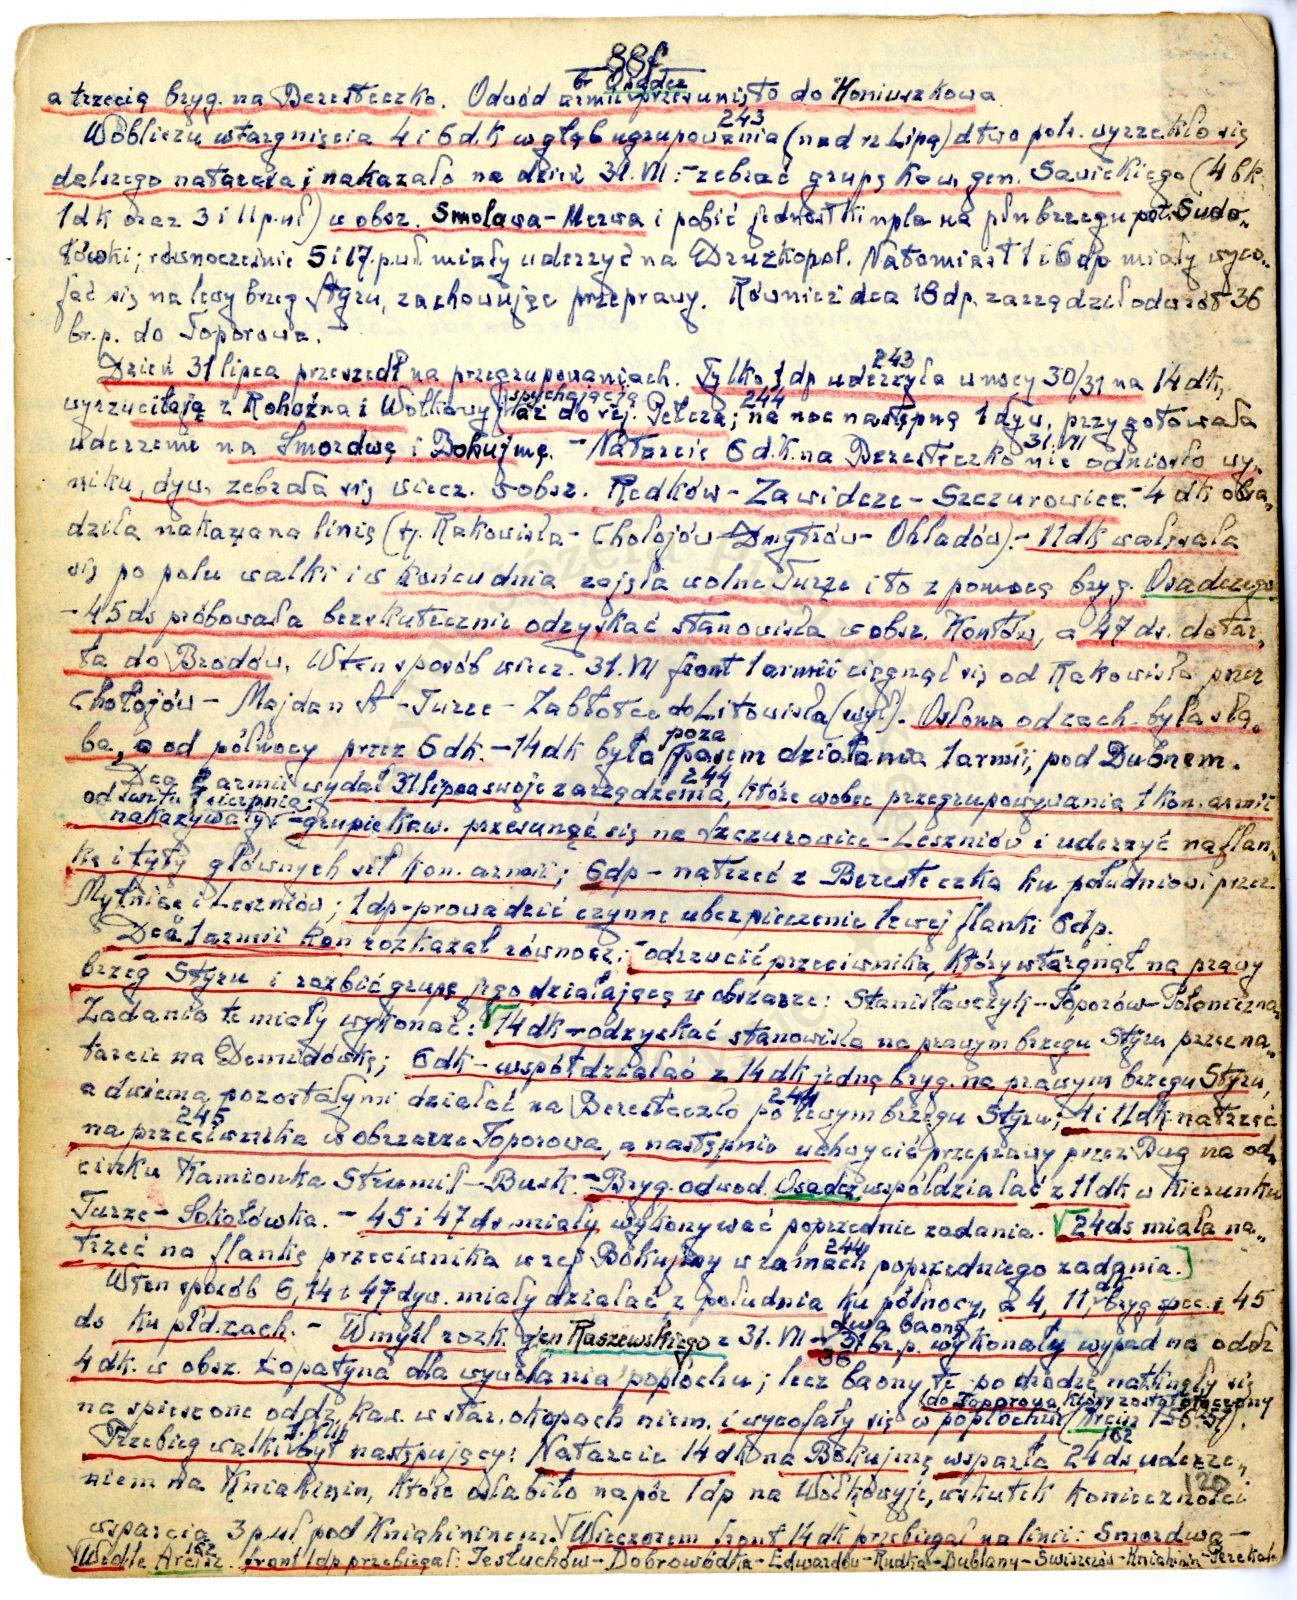 88f
br Osadcz
a trzecią bryg. na Beresteczko. Odwód armii przesunięto do Koniuszkowa
243
Wobliczu wtargnięcia 4 i 6 dk w głąb ugrupowania (nad rz Lipą) dtwo pols. wyrzekło się
dalszego natarcia i nakazało na dzień 31. VII :- zebrać grupę kaw. gen. Sawickiego (4 bk.
1 dk oraz 3 i 11 p.uł) w obsz. Smolawa - Merwa i pobić jednostki npla na płn brzegu pot. Sudo-
łówki; równocześnie 5 i 17. p.uł miały uderzyć na Drużkopol. Natomiast 1 i 6 dp miały wyco-
fać się na lewy brzeg Styru, zachowując przeprawy. Również dca 18 dp. zarządził odwrót 36
br. p. do Toporowa.
243
Dzień 31 lipca przeszedł na przegrupowaniach. Tylko 1 dp uderzyła w nocy 30/31 na 14 dk,
spychającją 244
wyrzuciła ją z Rohoźna i Wołkowyj aż do rej. Pełcza; na noc następną 1 dyw. przygotowała
31. VII
uderzenie na Smordwę i Bokujmę. - Natarcie 6 d.k. na Beresteczko nie odniosło wy-
niku, dyw. zebrała się wiecz. w obsz. Redków - Zawidcze - Szczurowice. - 4 dk obsa-
dziła nakazaną linię (tj. Rakowisła - Chołojów - Dmytrów - Ohladów). - 11 dk walczyła
się po polu walki i w końcu dnia zajęła wolne Turze i to z pomocą bryg. Osadczego
- 45 ds próbowała bezskutecznie odzyskać stanowiska w obsz. Hontów, a 47 ds. dotar-
ła do Brodów. W ten sposób wiecz. 31. VII front 1 armii ciągnął się od Rakowisła przez
Chołojów - Majdan St - Turze - Zabłotce do Litowisła (wył). Osłona od zach. była sła-
poza
ba, a od północy przez 6 dk. - 14 dk była pasem działania 1 armii, pod Dubnem.
244
Dca armii wydał 31 lipca swoje zarządzenia, które wobec przegrupowywania 1 kon. armii
od świtu 1 sierpnia
nakazywały: - grupie kaw. przesunąć się na Szczurowice - Leszniów i uderzyć na flan-
kę i tyły głównych sił kon. armii; 6 dp - natrzeć z Beresteczka ku południowi przez
Mytnicę i Leszniów; 1 dp - prowadzić czynne ubezpieczenie lewej flanki 6 dp.
Dca 1 armii kon rozkazał równocz: - odrzucić przeciwnika, który wtargnął na prawy
brzeg Styru i rozbić grupę jego działającą w obszarze: Stanisławczyk - Toporów - Połoniczna
Zadania te miały wykonać: 14 dk - odzyskać stanowiska na prawym brzegu Styru przez na-
tarcie na Demidówkę; 6 dk - współdziałać z 14 dk jedną bryg. na prawym brzegu Styru,
244
a dwiema pozostałymi działać na Beresteczko po lewym brzegu Styru; 4 i 11 dk natrzeć
245
na przeciwnika w obszarze Toporowa, a następnie uchwycić przeprawy przez Bug na od-
cinku Kamionka Strumił - Busk. - Bryg. odwod. Osadcz współdziałać z 11 dk w kierunku
Turze - Sokołówka. - 45 i 47 ds. miały wykonywać poprzednie zadania. 24 ds miała na-
244
trzeć na flankę przeciwnika w rej. Bokujmy w ramach poprzedniego zadania.
dk
W ten sposób 6, 14 i 47 dyw. miały działać z południa ku północy, a 4, 11, bryg spec. i 45
dwa baony
ds ku płd. zach. - W myśl rozk. gen Raszewskiego z 31. VII - br. p. wykonały wypad na oddz
36
4 dk. w obsz. Łopatyna dla wywołania popłochu; lecz baony te po drodze natknęły się
(do Toporowa, który został otoczony
na spieszone oddz. kaw. w star. okopach niem. i wycofały się w popłochu (Arcisz 156-57).
162
Przebieg walki był następujący: Natarcie 14 dk na Bokujmę wsparła 24 ds uderze-
120
niem na Kniahinin, które osłabiło napór 1 dp na Wołkowyje, wskutek konieczności
wsparcia 3 p.uł pod Kniahininem. Wieczorem front 14 dk przebiegał na linii: Smordwa -
162
Wedle Arcisz. front 1 dp przebiegał: Tesłuchów - Dobrowódka - Edwardów - Rudka - Dublany - Świszczów - Kniahinin - Perekale